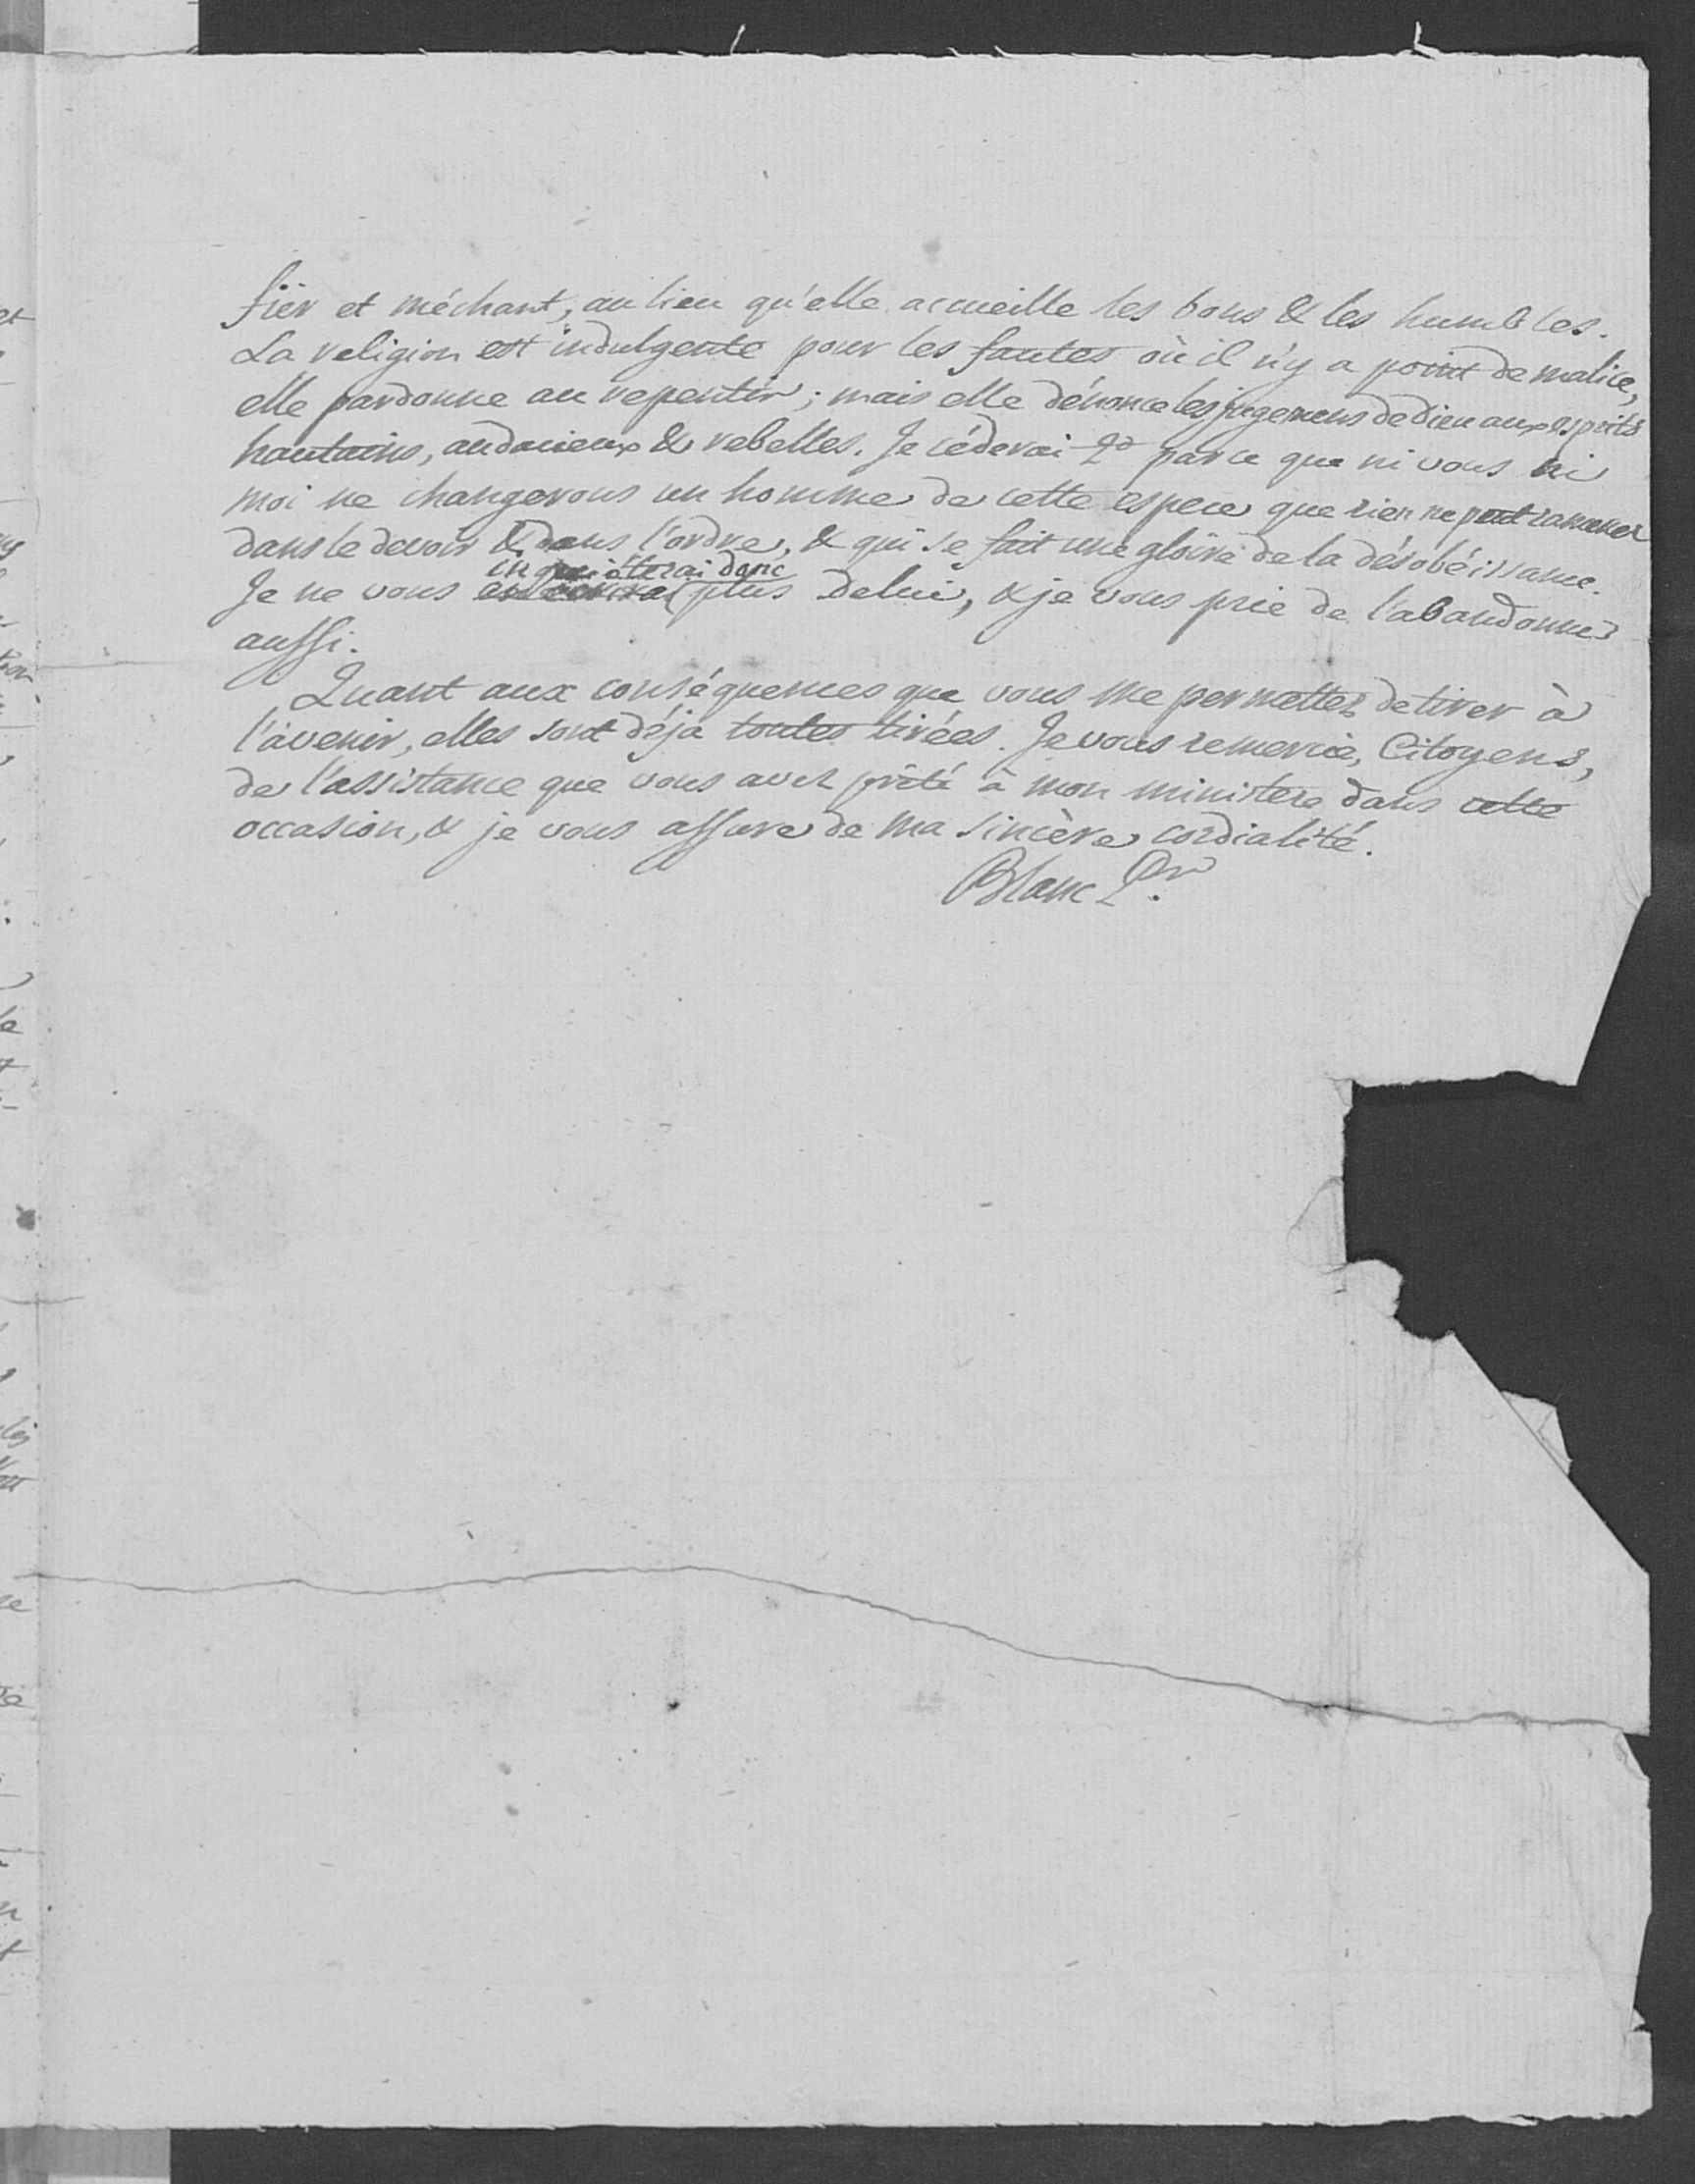 fiér et méchant, au lieu qu'elle accueille les bons & les humbles.
La religion est indulgente pour les fautes où il n'y a point de malice,
elle pardonne au repentir ; mais elle dénonce les jugemens de Dieu aux esprits
hautains, audacieux & rebelles. Je céderai 2° parce que ni vous ni
moi ne changerons un homme de cette espece que rien ne peut ramener
dans le devoir & dans l'ordre, & qui se fait une gloire de la désobéissance.
inquietterai donc
Je ne vous plus de lui, & je vous prie de l'abandonner
aussi.
Quant aux conséquences que vous me permettez de tirer à
l'avenir, elles sont déja toutes tirées. Je vous remercie, Citoyens,
de l'assistance que vous avez prêté à mon ministere dans cette
occasion, & je vous assure de ma sincère cordialité.
Blanc Pr.